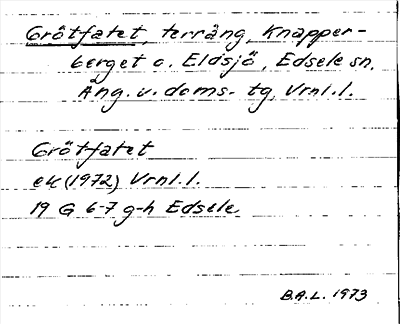 Grötfatet, terräng, Knapper-
berget o. Eldsjö, Edsele sn,
Ång. v. doms. tg, Vrnl. l.
Grötfatet
ek (1972) Vrnl. l.
19 G 6-7 g-h Edsele
B.A.L. 1973